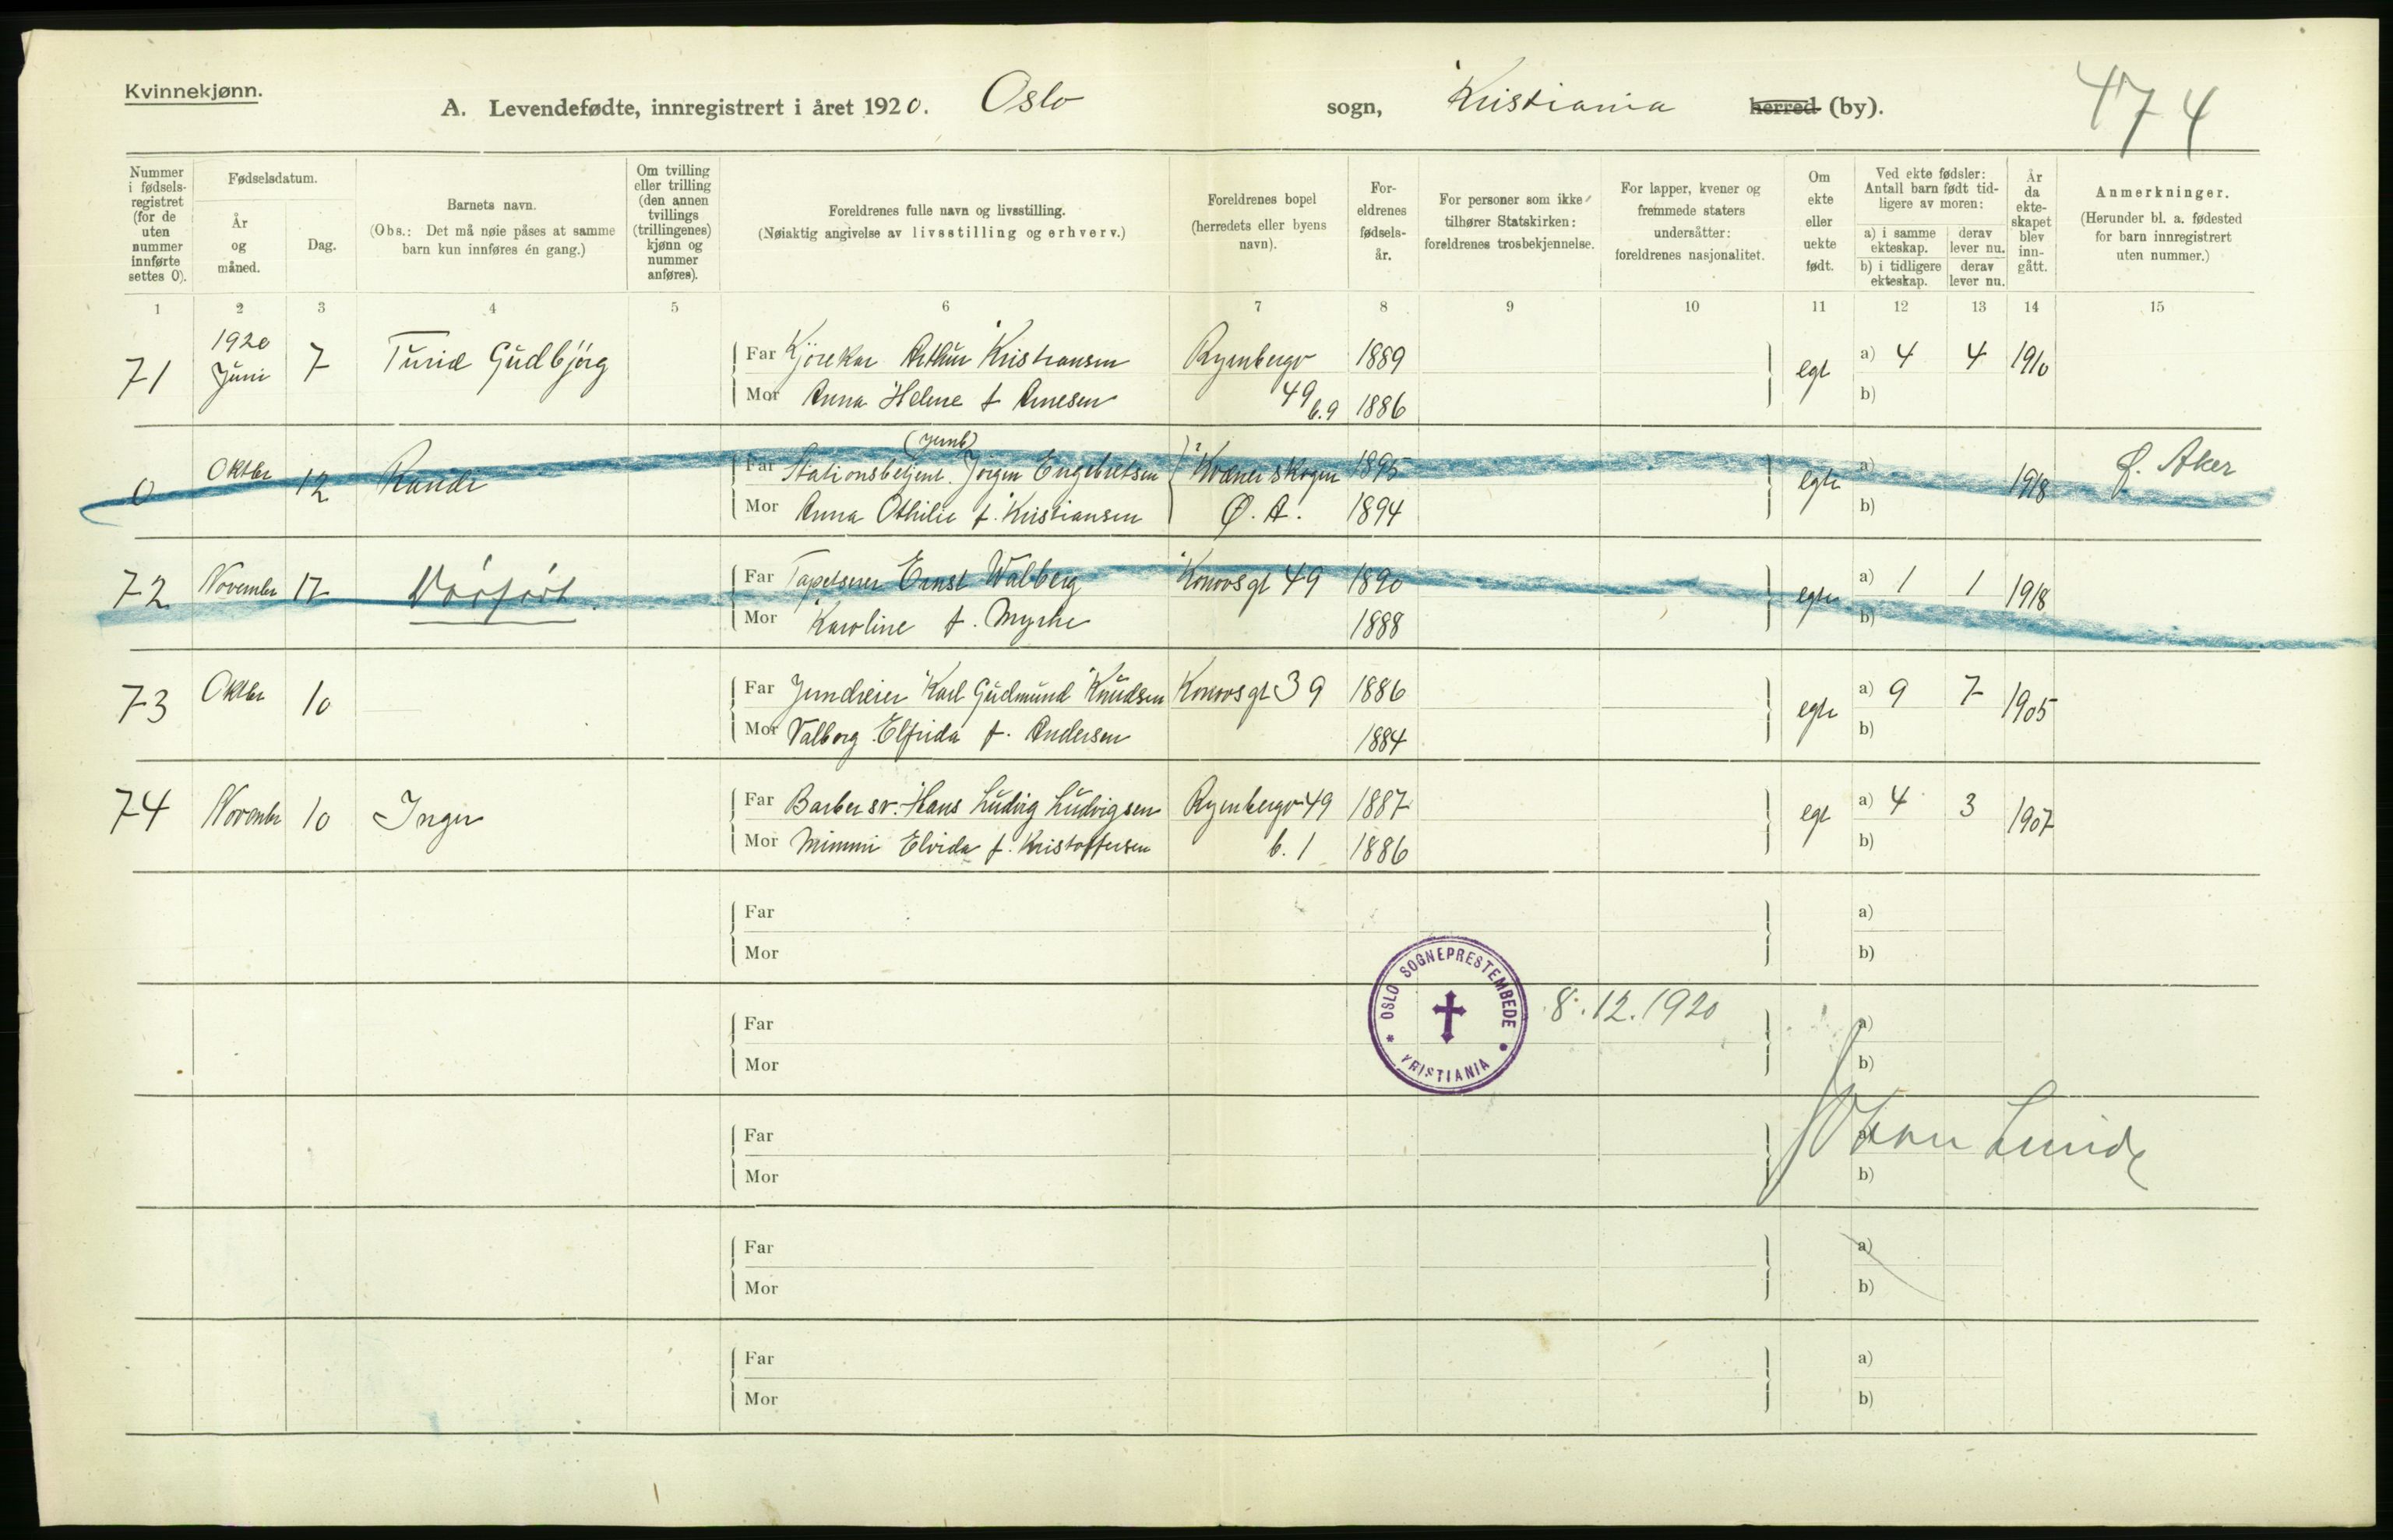 Kvinnekjønn.
A. Levendefødte, innregistrert i året 1920. Oslo sogn, Kristiania herred (by). 474
Nummer i fødsels-registret (for de uten nummer innførte settes 0).
Fødselsdatum.
År og måned.
Dag.
Barnets navn.
(Obs.: Det må nøie påses at samme barn kun innføres én gang.)
Om tvilling eller trilling (den annen tvillings (trillingenes) kjønn og nummer anføres).
Foreldrenes fulle navn og livsstilling.
(Nøiaktig angivelse av livsstilling og erhverv.)
Foreldrenes bopel
(herredets eller byens navn).
For-eldrenes fødsels-år.
For personer som ikke tilhører Statskirken: foreldrenes trosbekjennelse.
For lapper, kvener og fremmede staters undersåtter: foreldrenes nasjonalitet.
Om ekte eller uekte født.
Ved ekte fødsler: Antall barn født tid-ligere av moren:
a) i samme ekteskap. derav lever nu.
b) i tidligere ekteskap. derav lever nu.
År da ekte-skapet blev inn-gått.
Anmerkninger.
(Herunder bl. a. fødested for barn innregistrert uten nummer.)
1 2 3 4 5 6 7 8 9 10 11 12 13 14 15
71 1920 Juni 7 Turid Gudbjörg Far Kjörekar Arthur Kristiansen Ryenbergv 1889 egt a) 4 4 1910
Mor Anna Helene f Arnesen 49 b.9 1886 b)
(Jernb)
0 Oktbr 12 Randi Far Stationsbetjent Jörgen Engebretsen Kværnerskogen 1895 egte a) 1918 Ø. Aker
Mor Anna Othilie f. Kristiansen Ø. A. 1894 b)
72 November 17 Far Tapetserer Ernst Walberg Konowsgt 49 1890 egte a) 1 1 1918
Mor Karoline f. Myrhe 1888 b)
73 Oktbr 10 Far Jerndreier Karl Gudmund Knudsen Konowsgt 39 1886 egte a) 9 7 1905
Mor Valborg Elfrida f. Andersen 1884 b)
74 November 10 Inger Far Barber sv. Hans Ludvig Ludvigsen Ryenbergv 49 1887 egt a) 4 3 1907
Mor Mimmi Elvida f. Kristoffersen b. 1 1886 b)
Far a)
Mor b)
OSLO SOGNEPRESTEMBEDE KRISTIANIA
8.12.1920
Far a)
Mor b)
Johan Lunde
Far a)
Mor b)
Far a)
Mor b)
Far a)
Mor b)